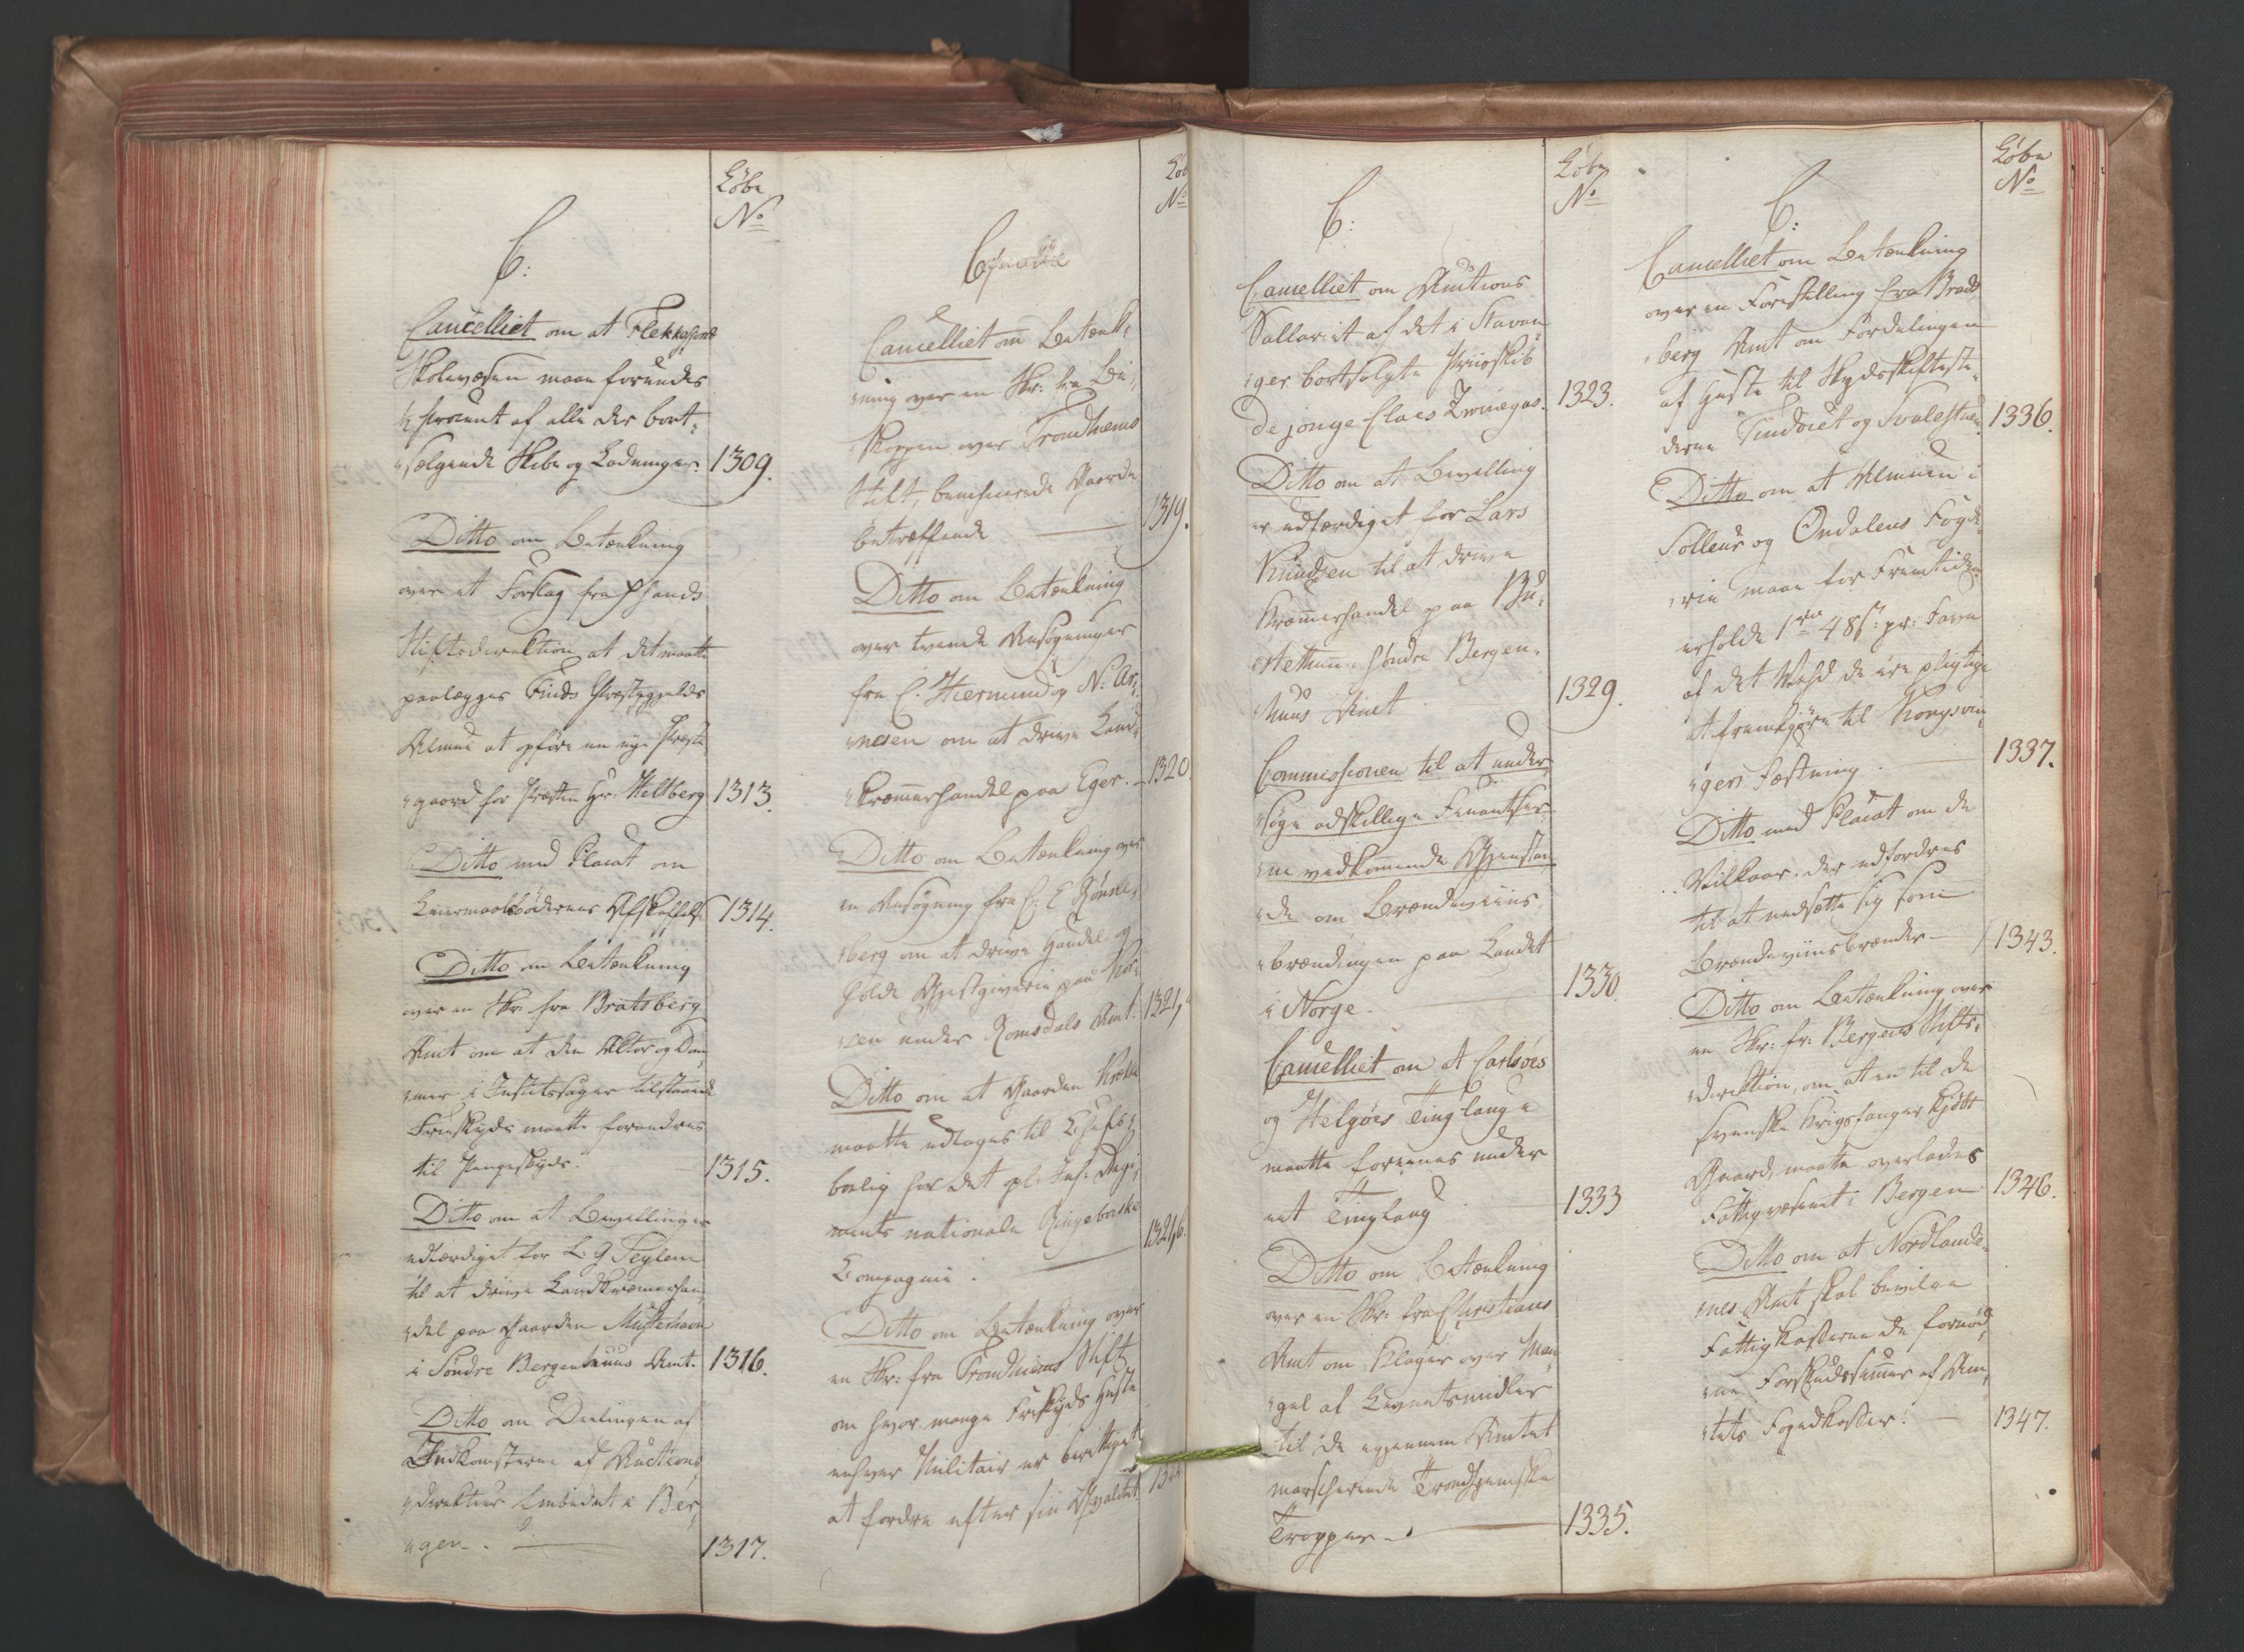 Løbe
No
C:
Cancelliet om at Flekkefiords
Skolevæsen maae forundes
½ procent af alle der bort-
sælgende Skibe og Ladninger.
1309.
Ditto om Betænkning
over et Forslag fra Chsands
Stiftsdirektion at det maatte
paalægges Finds Præstegjelds
Almue at opføre en nye Præste-
gaard for Præsten Hr. Heltberg
1313.
Ditto med Placat om
Leiermaalsbødernes Afskaffelse
1314.
Ditto om Betænkning
over en Skr. fra Bratsberg
Amt om at den Aktor og Dom-
mer i Justitssager tilstaaende
Frieskyds maatte forandres
til Pengeskyds.
1315.
Ditto om at Bevillinger
udfærdiget for L. G. Teylem
til at drive Landkræmmerhan-
del paa Gaarden Mosterhavn
i Søndre Bergenhuus Amt.
1316.
Ditto om Deelingen af
Indkomsterne af Auctions-
direkteur Embedet i Ber-
gen.
1317.
Løb
No
C
Cancelliet om Betænk-
ning over en Skr: fra Bi-
skoppen over Trondhiems
Stift, beneficerede Gaarde
betræffende
1319.
Ditto om Betænkning
over tvende Ansøgninger
fra C. Hiermund og N: Ar-
nesen om at drive Land-
kræmmerhandel paa Eger.
1320.
Ditto om Betænkning over
en Ansøgning fra C: E Rønne-
berg om at drive Handel og
holde Gjestgiverie paa
under Romsdals Amt.
1321,a
Ditto om at Gaarden
maatte udtages til Chefs-
bolig for det opl. Inf. Regi-
ments nationale Ringeboeske
Compagnie.
1321,b.
Ditto om Betænkning over
en Skr: fra Trondhiems Stift
om hvor mange Friskyds Heste
enhver Militair er berettiget
at fordre efter sin Qvalitet.
Løbe
No
C:
Cancelliet om Auctions
Sallariet af det i Stavan-
ger bortsolgte Priisskib
De jonge Claes Zwinegas.
1323.
Ditto om at Bevilling
er udfærdiget for Lars
Knudsen til at drive
Kræmmerhandel paa
i Søndre Bergen-
huus Amt
1329.
Commissionen til at under-
søge adskillige Finantser-
ne vedkommende Gjenstan-
de om Brændeviins
brændingen paa Landet
i Norge.
1330.
Cancelliet om at Carlsøes
og Helgøes Tinglauge
maatte forenes under
eet Tinglaug
1333
Ditto om Betænkning
over en Skr: fra Christians
Amt om Klager over Man-
gel af Levnetsmidler
til de igjennem Amtet
marscherende Trondhjemske
Tropper.
1335.
Løbe
No
C:
Cancelliet om Betænkning
over en Forestilling fra Brads-
berg Amt om Fordelingen
af Heste til Skydsskifteste-
derne Tindoset og
1336.
Ditto om at Almuen i
Solleør og Øndalens Fogde-
rie maae for Fremtiden
erholde 1 rd 48 s: pr: Favn
af det Vehd de ere pligtige
at fremkjøre til Kongsvin-
gers Fæstning.
1337.
Ditto med Placat om de
Vilkaar, der udfordres
til at nedsætte sig som
Brændeviinsbrænder
1343.
Ditto om Betænkning over
en Skr: fr: Bergens Stifts-
direktion, om at en til de
svenske Krigsfanger kjøbt
Gaard, maatte overlades
Fattigvæsenet i Bergen
1346.
Ditto om at Nordlande-
nes Amt skal bevilge
Fattigkasserne de fornød-
ne Forskudssummer af Am-
tets Fogedkasser.
1347.